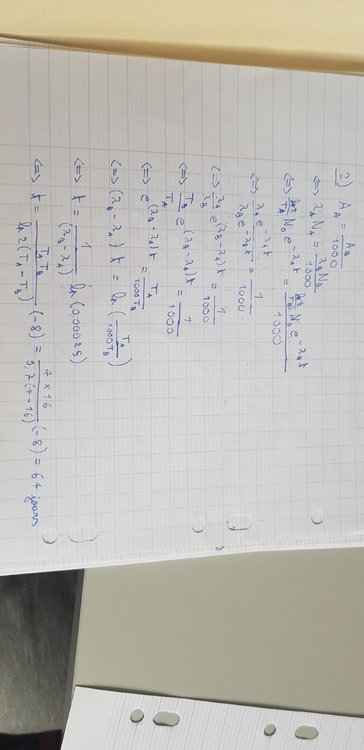 2) A_A = A_B / 1000
(=) λ_A N_A = λ_B N_B / 1000
(=) ln2/T_A N_0 e^{-λ_A t} = ln2/T_B N_0 e^{-λ_B t} / 1000
(=) λ_A e^{-λ_A t} / λ_B e^{-λ_B t} = 1/1000
(=) λ_A/λ_B e^{(λ_B - λ_A)t} = 1/1000
(=) T_B/T_A e^{(λ_B - λ_A)t} = 1/1000
(=) e^{(λ_B - λ_A)t} = T_A / 1000 T_B
(=) (λ_B - λ_A) t = ln (T_A / 1000 T_B)
(=) t = 1/(λ_B - λ_A) ln (0,00025)
(=) t = T_A T_B / ln 2 (T_A - T_B) (-8) = 4 × 16 / 0,7 (4 - 16) (-8) = 64 jours